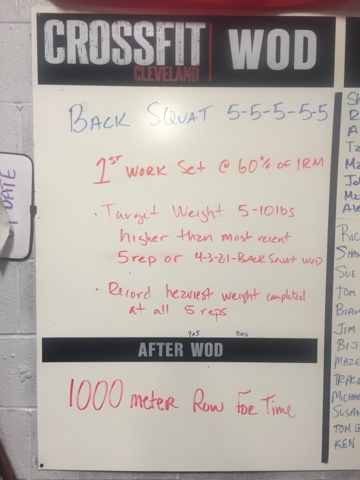 CROSSFIT
CLEVELAND
WOD
BACK SQUAT 5-5-5-5-5
1ST WORK Set @ 60% of 1RM
• Target Weight 5-10lbs
higher than most recent
5 rep or 4-3-2-1-BACK SQUAT WOD
• Record heaviest weight completed
at all 5 reps
AFTER WOD
1000 meter Row For Time
DATE
RIC
SUE
TOM
JIM
BIJ
SUSAN
KEN